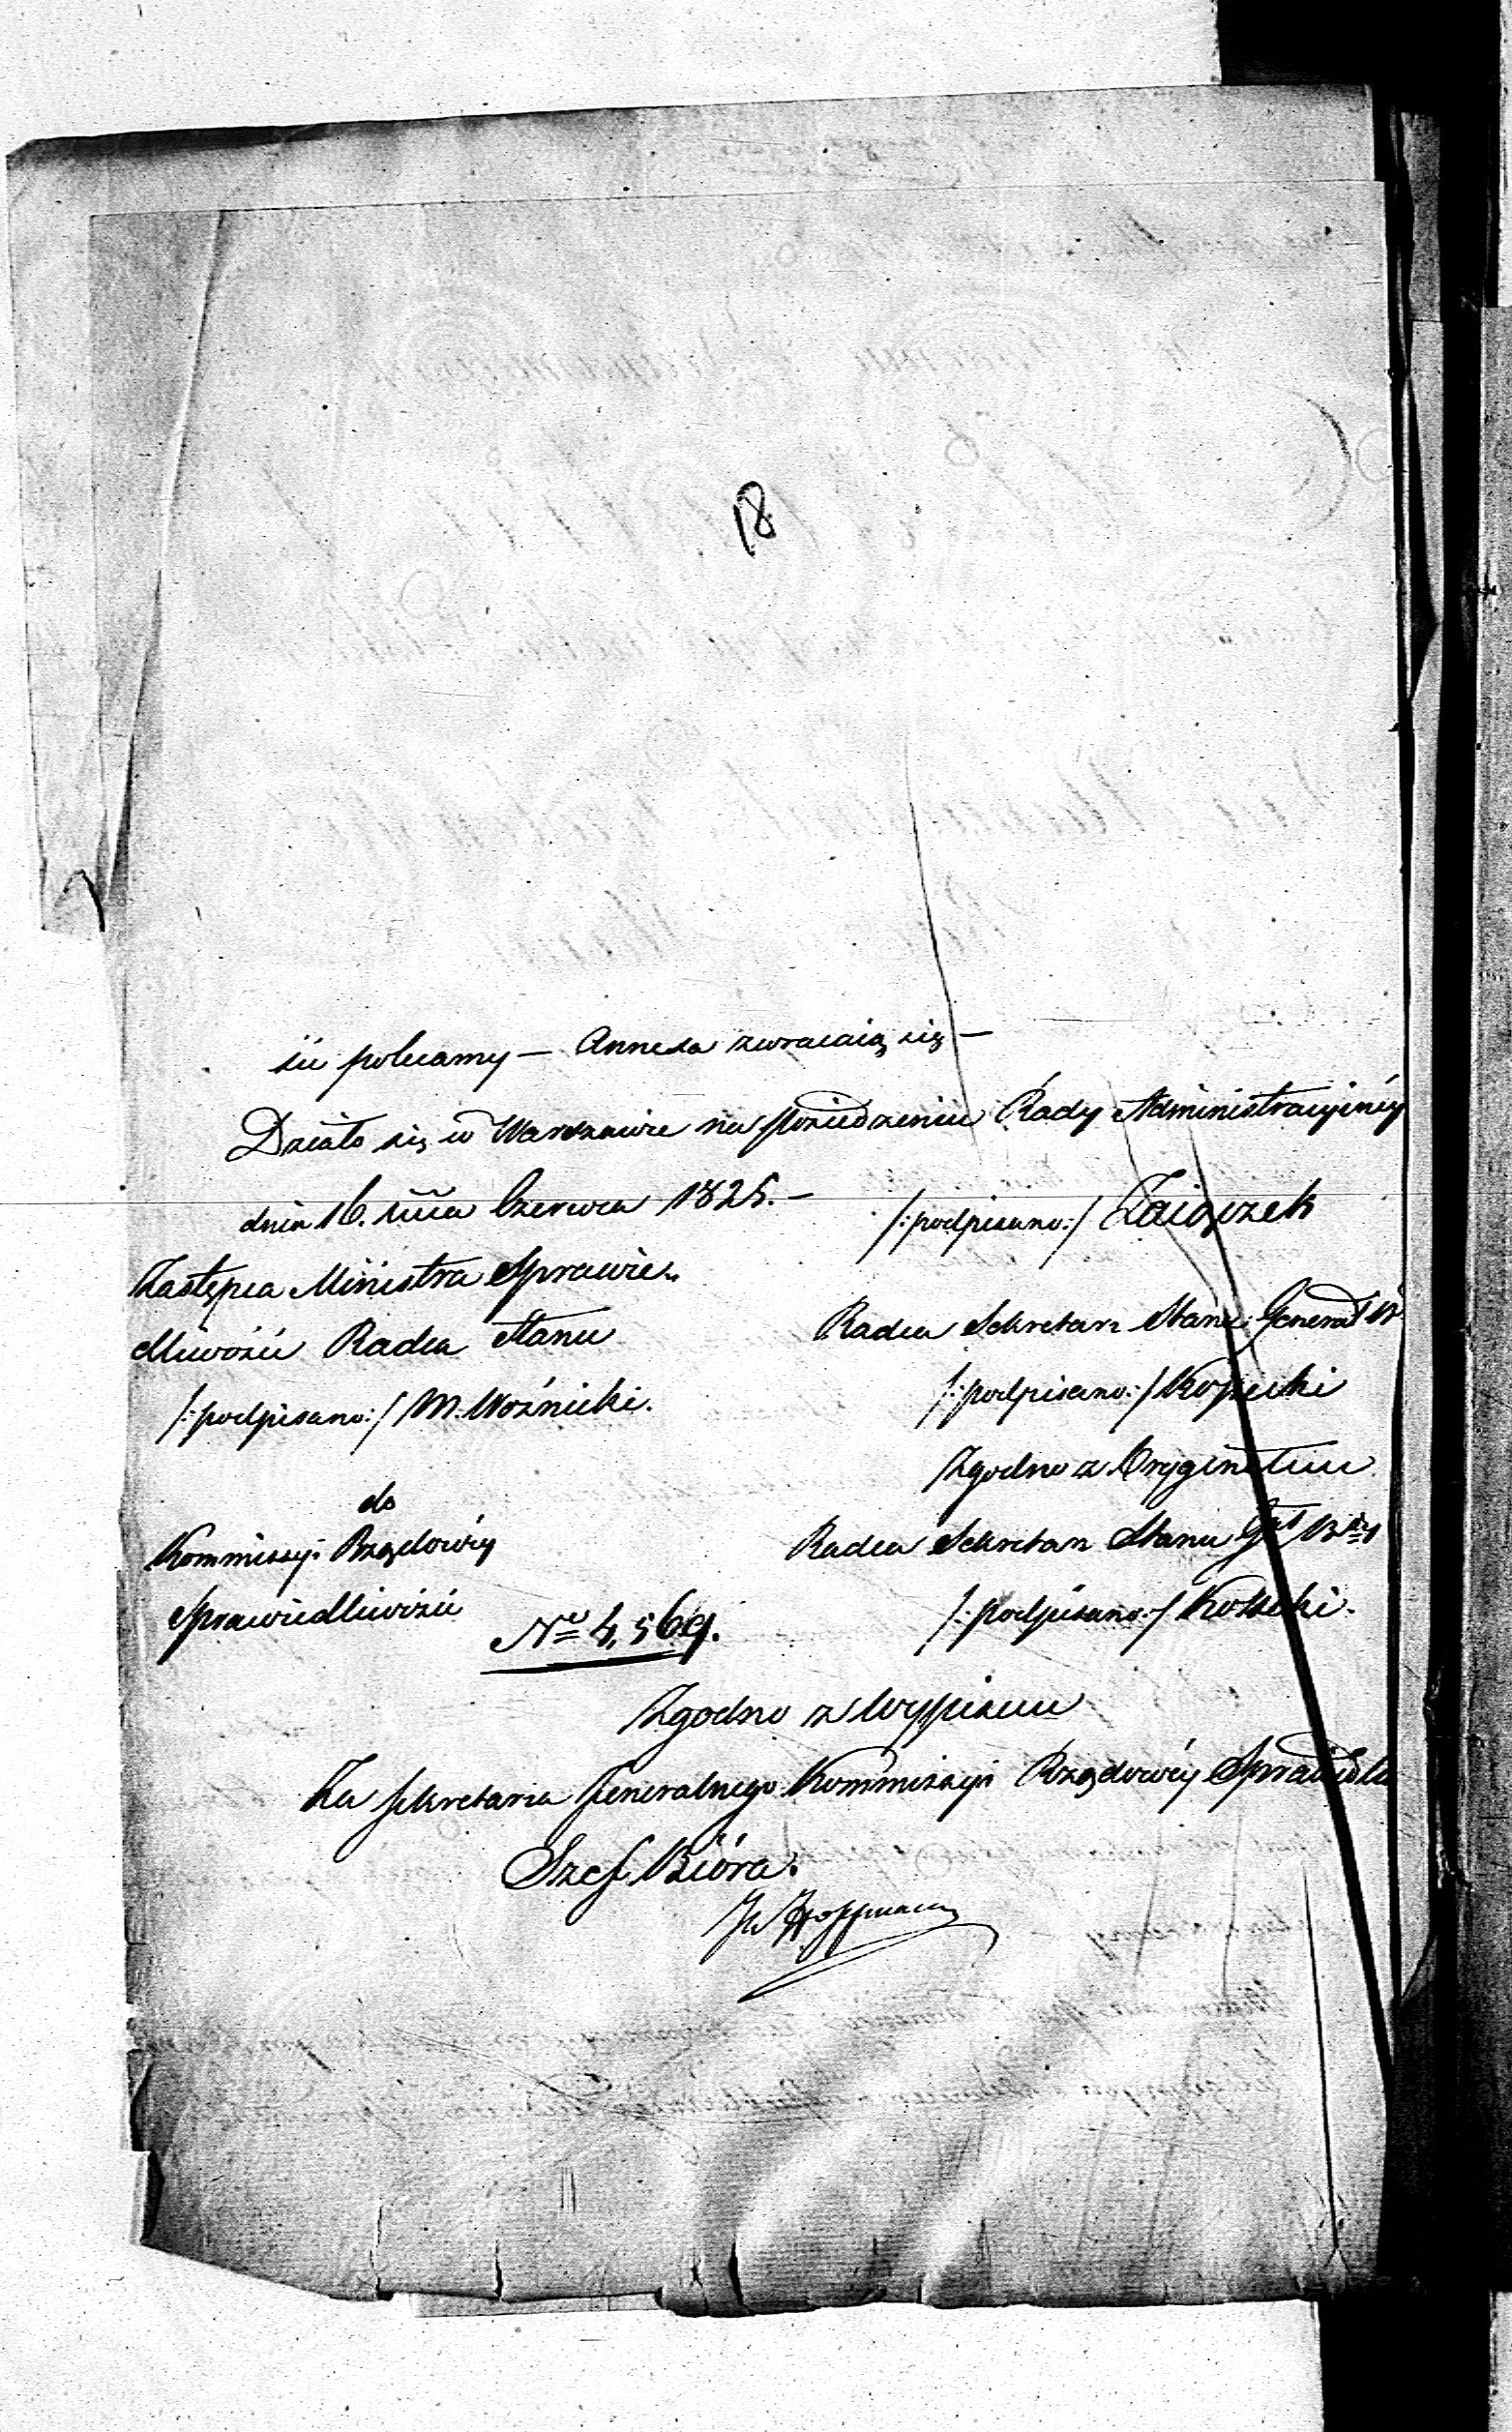 18
ści polecamy — Annexa zwracaią się —
Działo się w Warszawie na posiedzeniu Rady Administracyinéy
dnia 16. Czerwca 1825. —
/:podpisano:/ Zaiączek
Zastępca Ministra Sprawie„
dliwości Radca Stanu
/:podpisano:/ M. Woźnicki.
Radca Sekretarz Stanu Generał B.
/:podpisano:/ Kossecki
Zgodno z Oryginałem
Radca Sekretarz Stanu Grał Bdy
/:podpisano:/ Kossecki.
do
Kommissyi Rządowéy
Sprawiedliwości
No 4,569.
Zgodno z Wypisem
Za Sekretarza Jeneralnego Kommissyi Rządowéy Sprawiedli
Szef Bióra.
Hoffmann